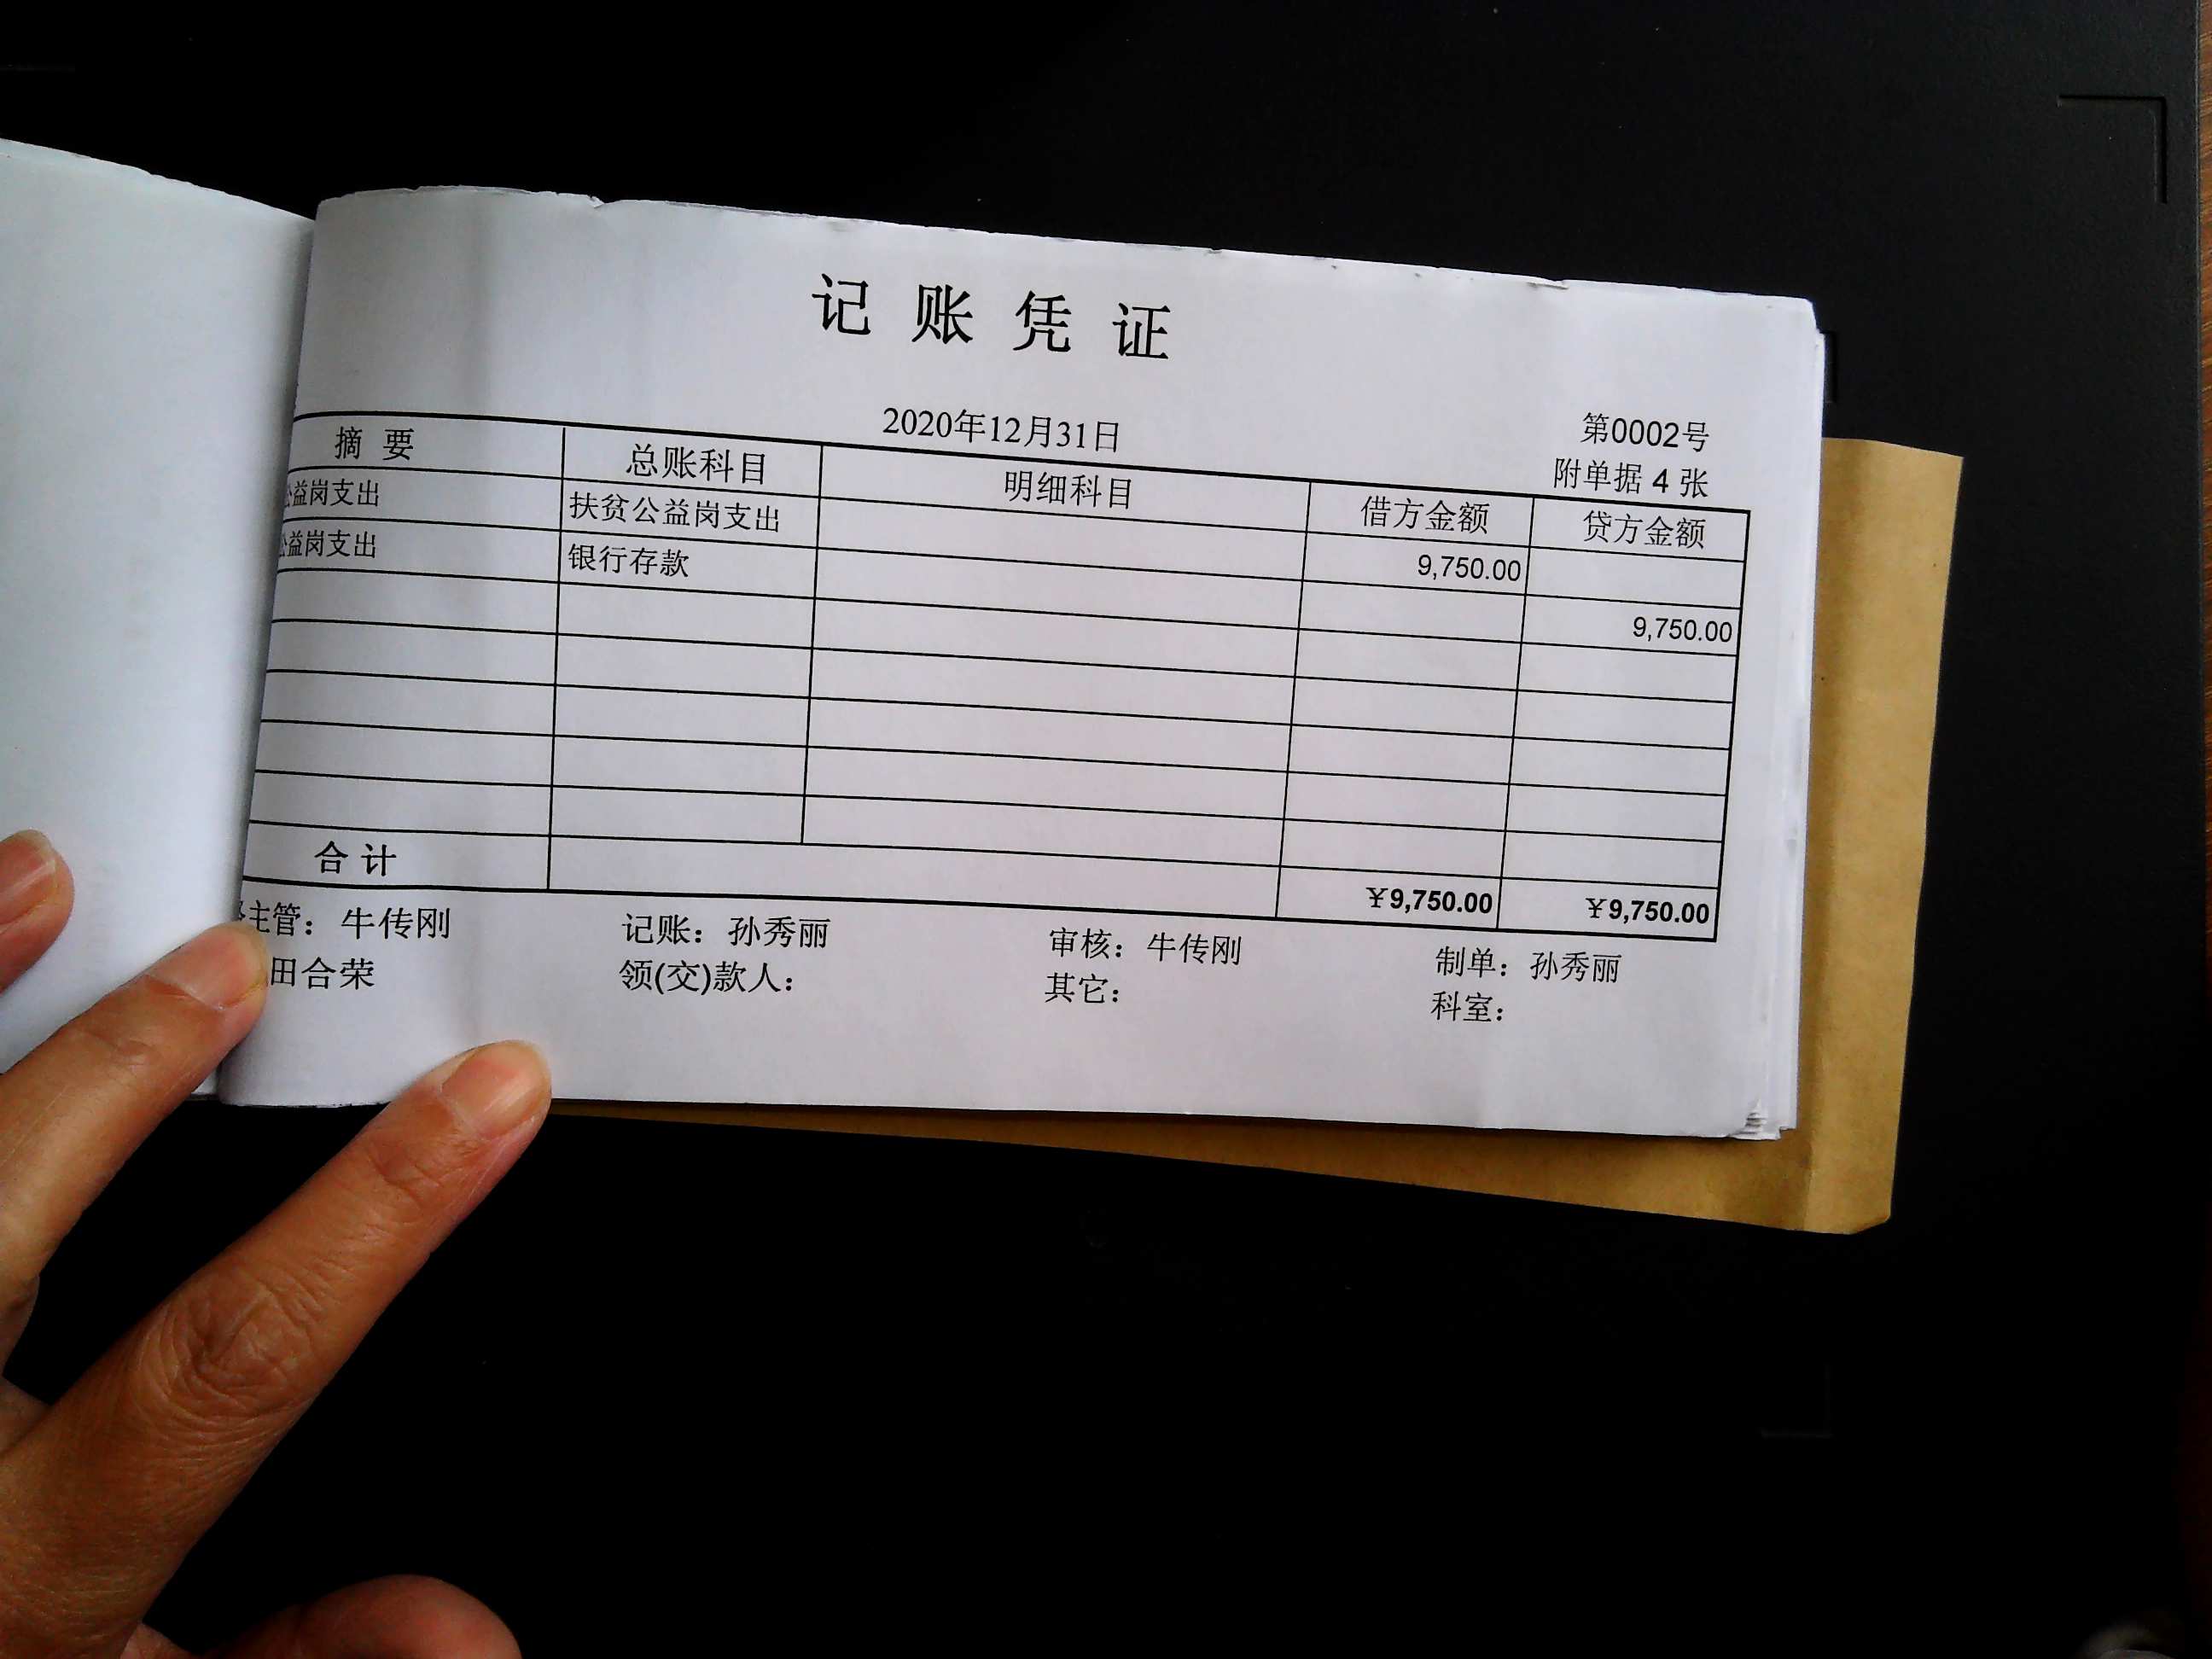 记账凭证
2020年12月31日
第0002号
附单据 4 张
摘要 总账科目 明细科目 借方金额 贷方金额
益岗支出 扶贫公益岗支出 9,750.00
益岗支出 银行存款 9,750.00
合计 ¥9,750.00 ¥9,750.00
主管：牛传刚 记账：孙秀丽 审核：牛传刚 制单：孙秀丽
田合荣 领(交)款人： 其它： 科室：